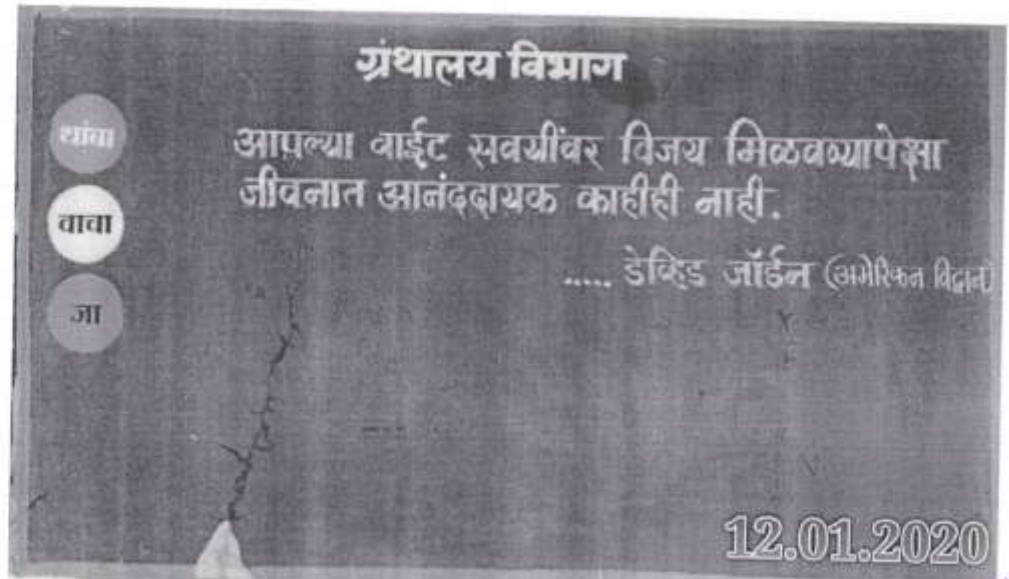 ग्रंथालय विभाग
थांबा
वाचा
जा
आपल्या वाईट सवयींवर विजय मिळवण्यापेक्षा
जीवनात आनंददायक काहीही नाही.
..... डेव्हिड जॉर्डन (अमेरिकन विद्वान)
12.01.2020